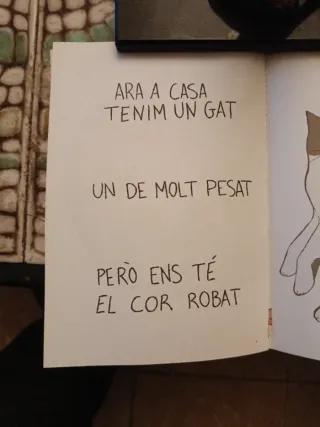 ARA A CASA
TENIM UN GAT
UN DE MOLT PESAT
PERÒ ENS TÉ
EL COR ROBAT